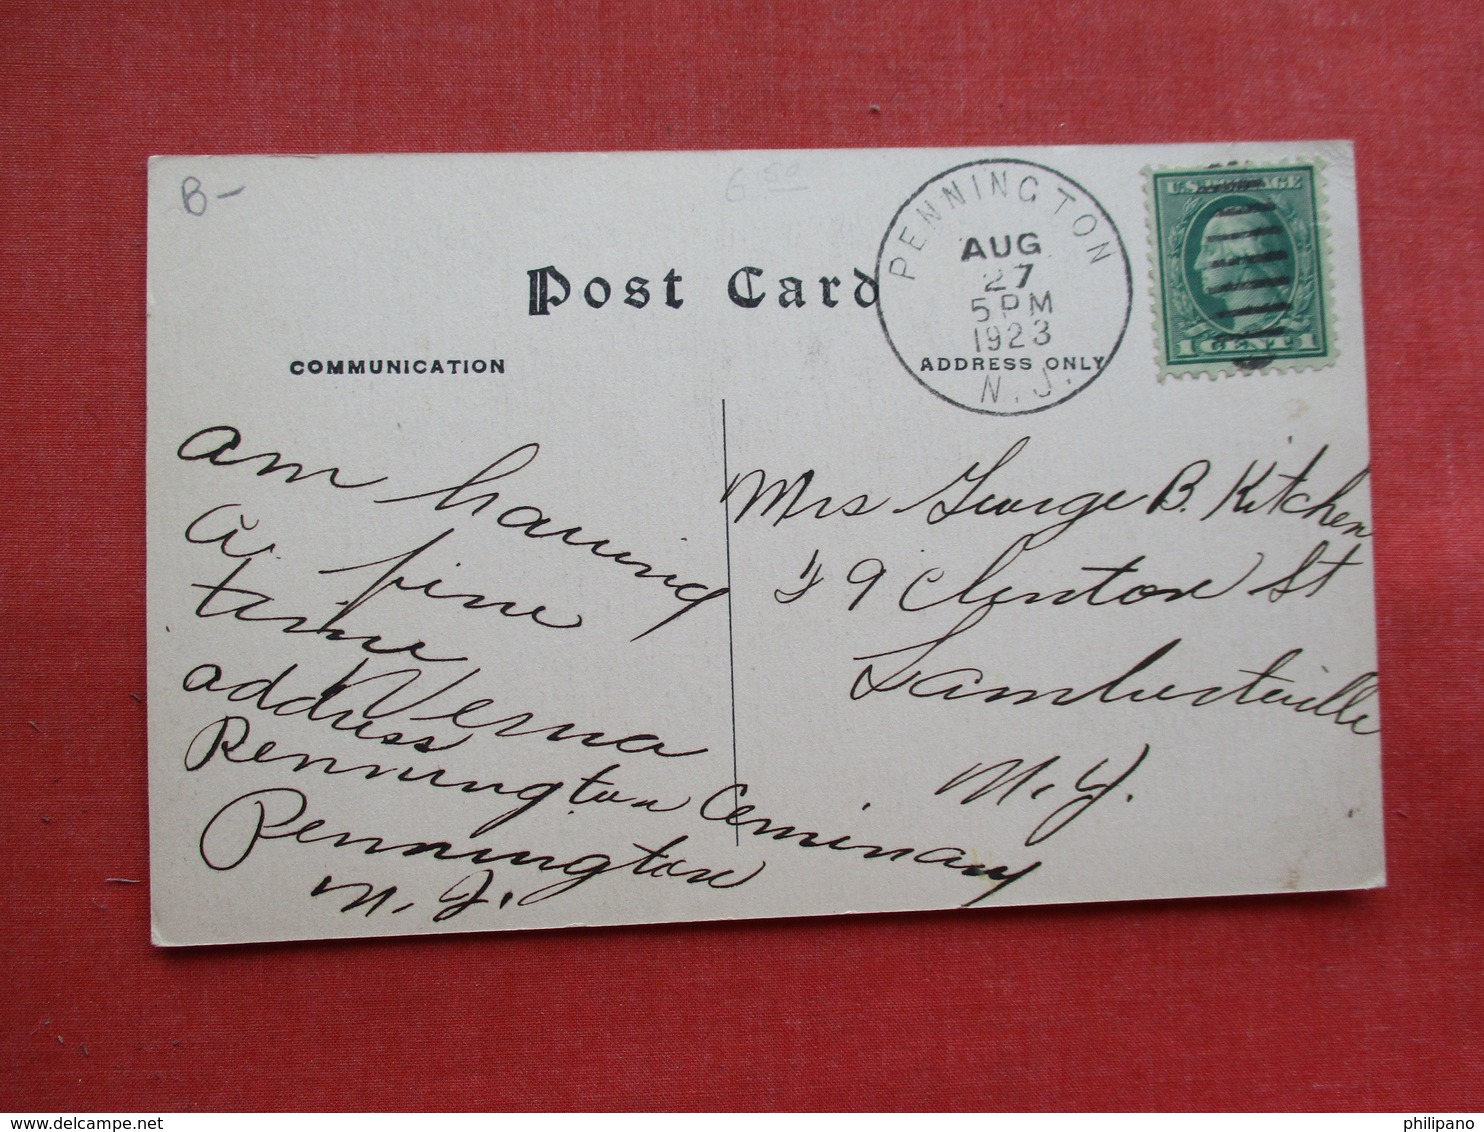 B-
6.50
Post Card
COMMUNICATION
ADDRESS ONLY
PENNINGTON
AUG
27
5 PM
1923
N. J.
U.S. POSTAGE
1 CENT 1
am having
a fine
time
Verna
address
Pennington Ceminary
Pennington
N. J.
Mrs George B. Kitchen
9 Clinton St
Lambertville
N. J.
delcampe.net
philipano